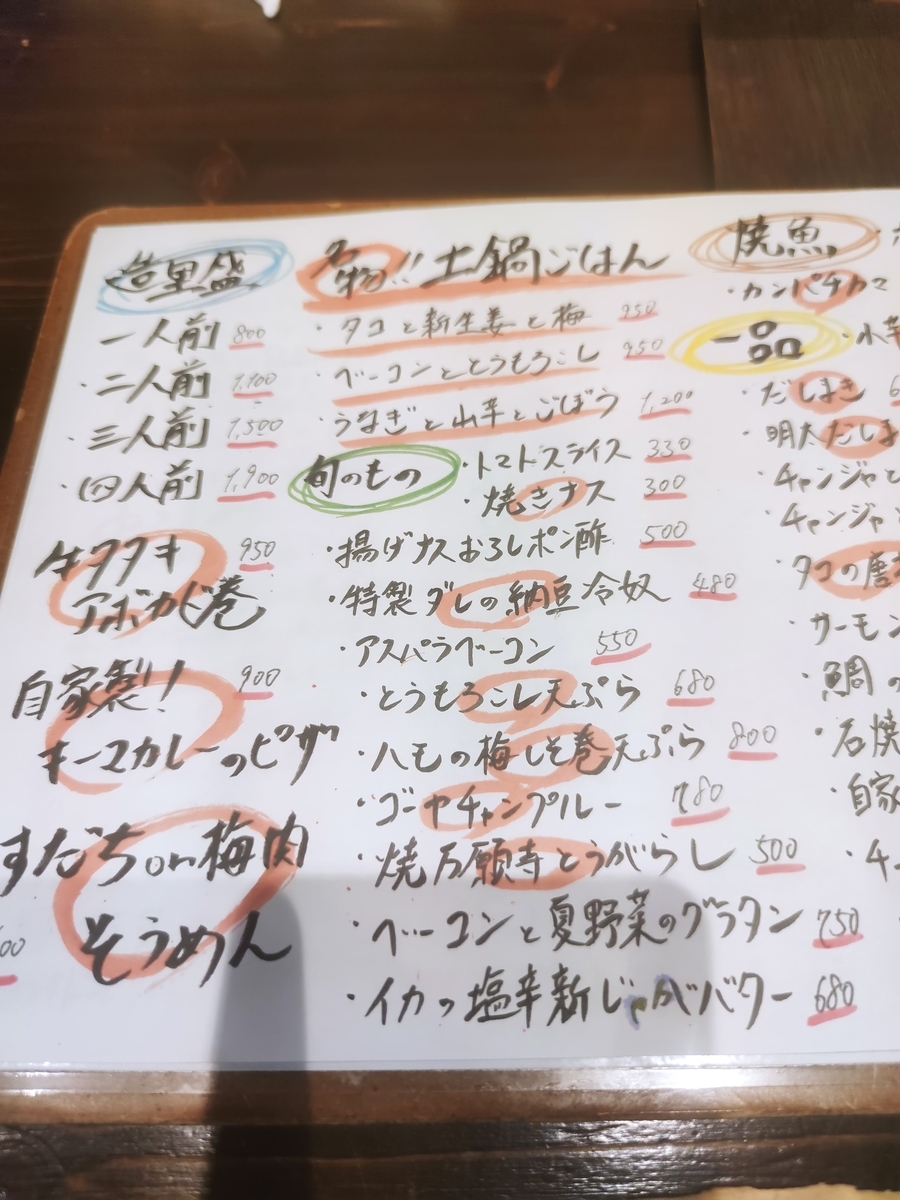 造里盛
一人前 800
・二人前 1,100
・三人前 1,500
・四人前 1,900
牛タタキ 950
アボカド巻
自家製! 900
キーマカレーのピザ
すだちor梅肉
そうめん
00
名物!! 土鍋ごはん
・タコと新生姜と梅 950
・ベーコンととうもろこし 950
・うなぎと山芋とごぼう 1,200
旬のもの
・トマトスライス 330
・焼きナス 300
・揚げナスおろしポン酢 500
・特製ダレの納豆冷奴 480
・アスパラベーコン 550
・とうもろこし天ぷら 680
・ハモの梅しそ巻天ぷら 800
・ゴーヤチャンプルー 780
・焼万願寺とうがらし 500
・ベーコンと夏野菜のグラタン 750
・イカの塩辛新じゃがバター 680
焼魚
・カンパチカマ
一品
・だしまき 6
・明太だしま
・チャンジャと
・チャンジャ
・タコの唐
・サーモン
・鯛の
・石焼
・自家
・チ